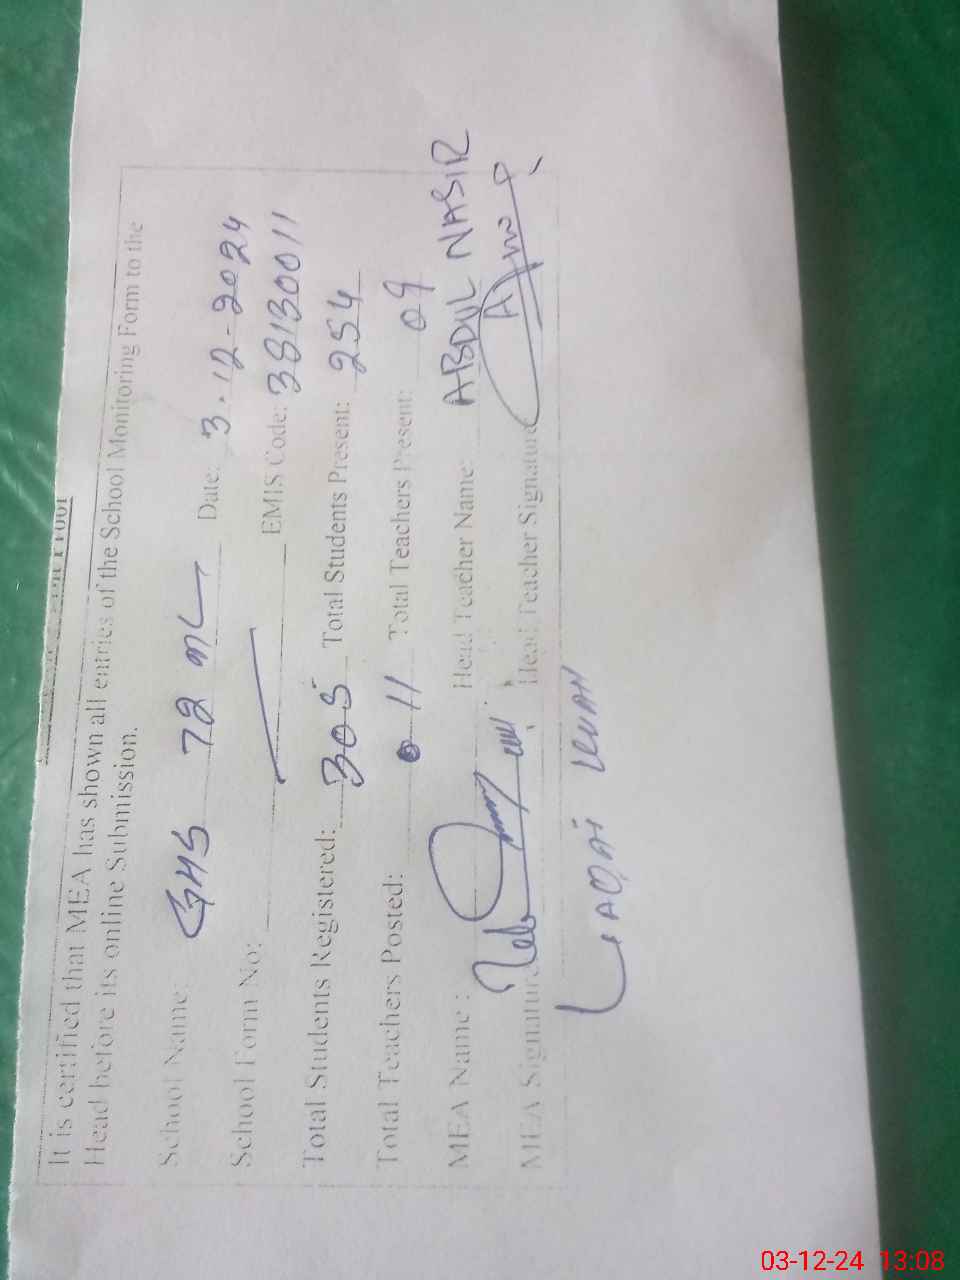 It is certified that MEA has shown all entries of the School Monitoring Form to the
Head before its online Submission.
School Name: GHS 72 ML Date: 3.12-2024
School Form No: EMIS Code: 38130011
Total Students Registered: 305 Total Students Present: 254
Total Teachers Posted: 11 Total Teachers Present: 09
MEA Name: Head Teacher Name: ABDUL NASIR
MEA Signature Head Teacher Signature
03-12-24 13:08